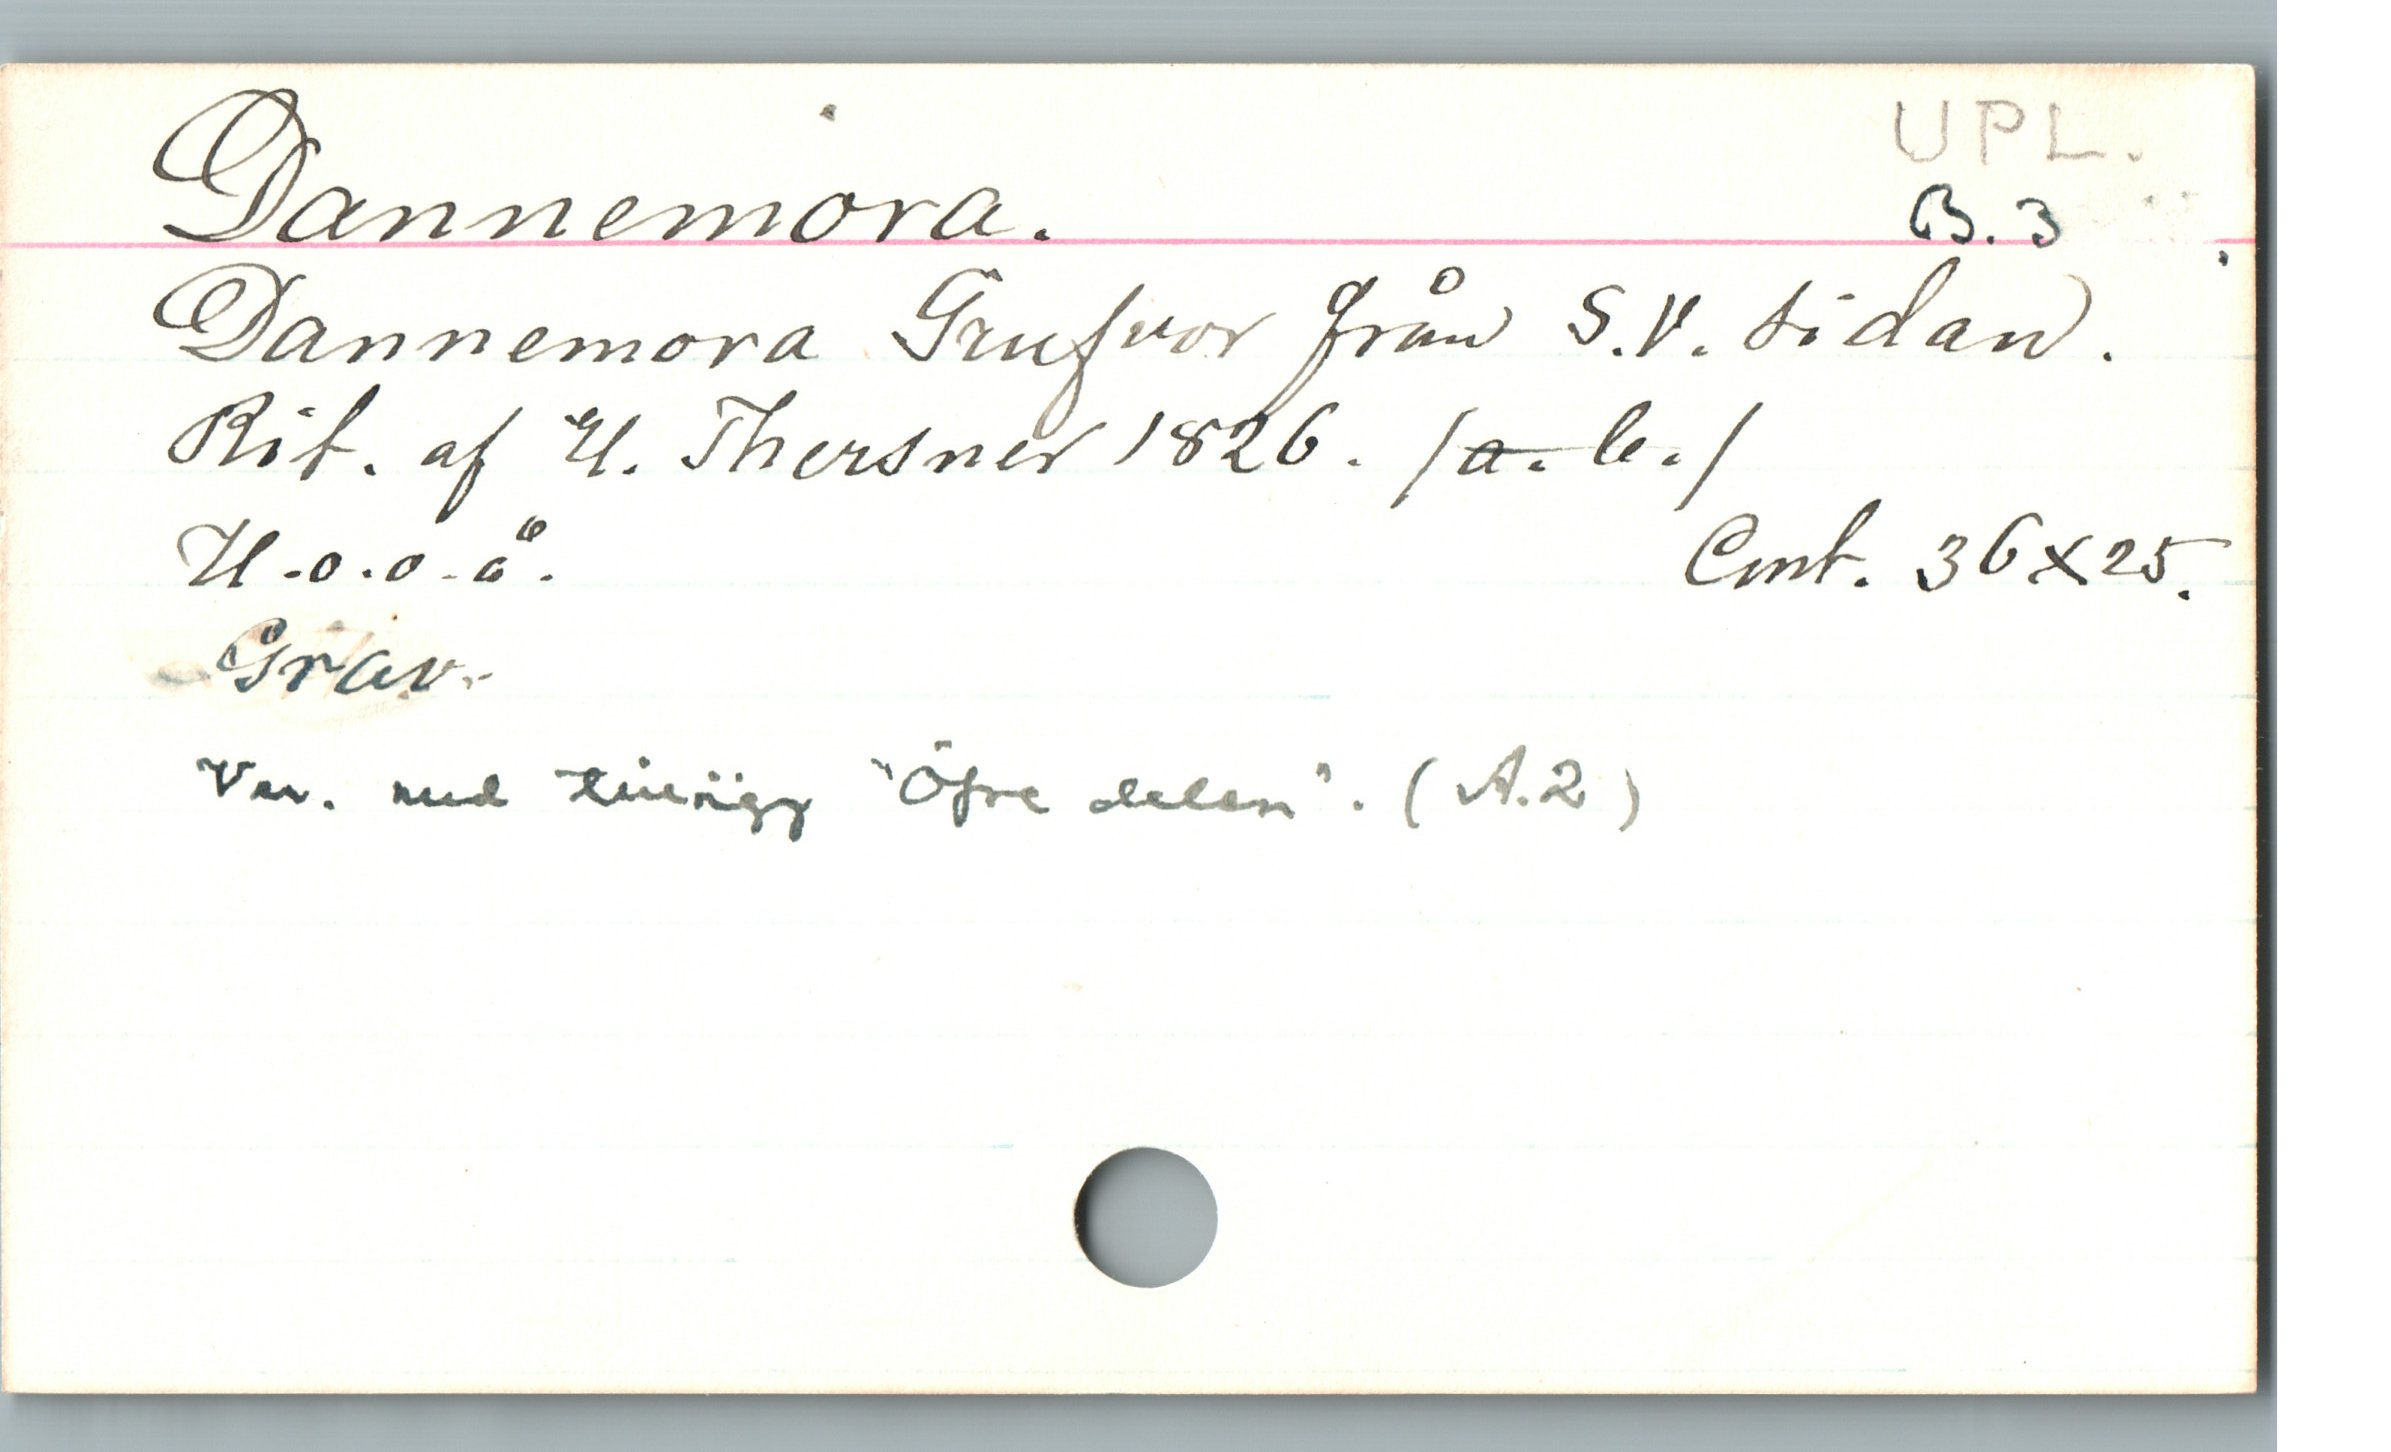 UPL.
Dannemora. B. 3
Dannemora Grufvor från S.V. sidan.
Rit. af U. Thersner 1826. /a. b./
U.o.o.å. Cmt. 36×25.
Grav.
Var. med tillägg "Öfre delen". (A.2)